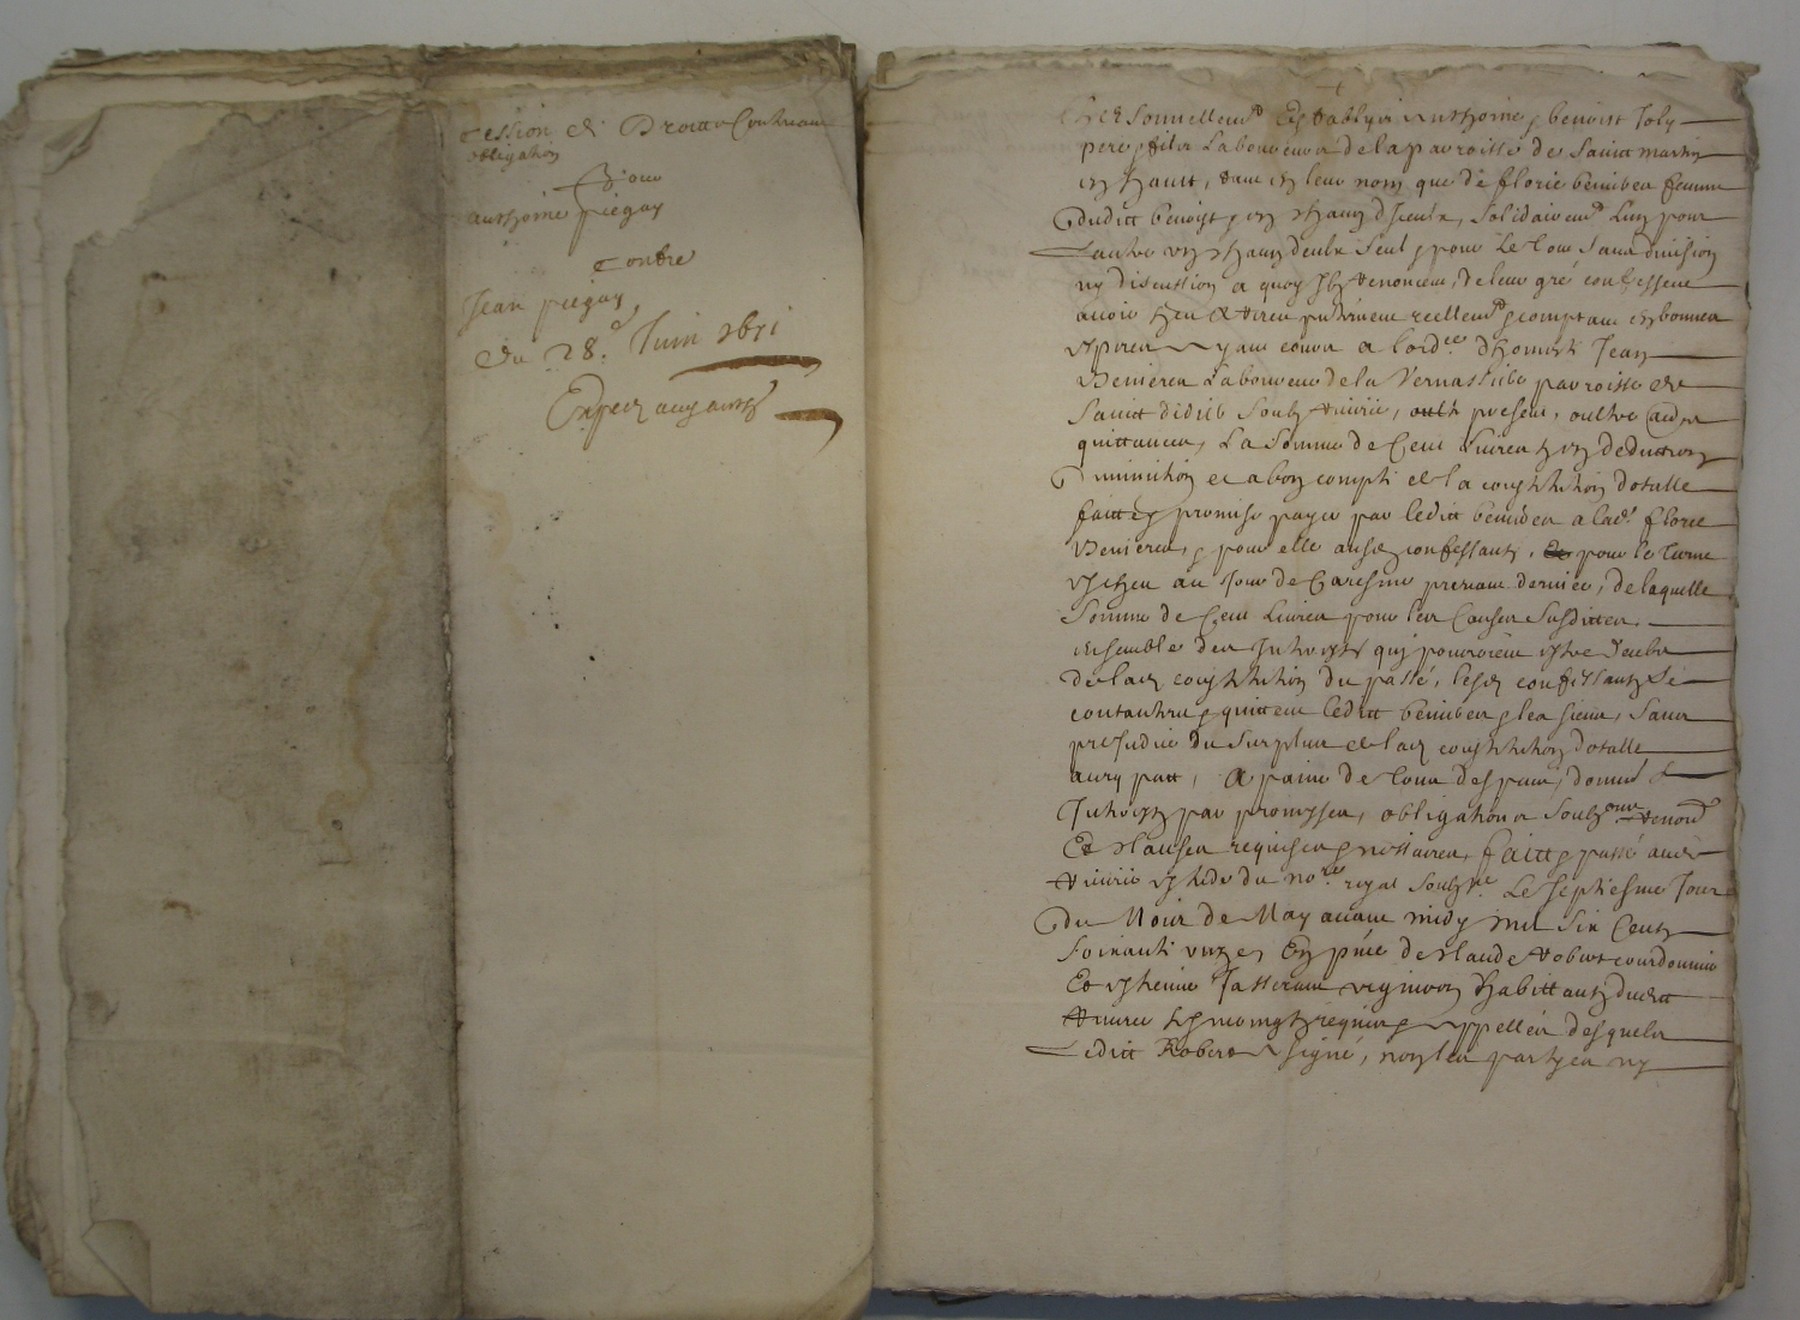 Cession de Droitz Contenant
obligation
Pour
anthoine piegay
contre
Jean piegay
du 28.e Juin 1671
Exped aux
Personnellemt Establyis anthoine & benoist Joly
pere & filz Laboureurs de la parroisse de Sainct martin
en hault, tant en leur nom que de florie femme
dudict benoist & en chacun d'jceulx, solidairemt Lun pour
Lautre un chacun deulx seul & pour Le tout sans division
ny discution a quoy Ilz renoncent, de leur gré confessent
avoir heu & receu reellemt & comptant en bonnes
especes ayant cours a lordce dhoneste Jean
Laboureur de la parroisse de
Sainct didier soubz riverie, present, oultre
quittances, La Somme de Cent Livres en deduction
diminution et a bon compte de la constitution dotalle
faicte & promise payer par ledict a lad. florie
& pour elle ausd confessantz, pour le terme
escheu au Jour de Caresme prenant dernier, de laquelle
Somme de Cent Livres pour les Causes Susdittes,
ensemble des Interestz qui pourroient estre deubz
de lad constitution du passé, lesd confessantz se
contentent & quittent ledict & les siens, sans
prejudice du surplus de lad constitution dotalle
a paine de tous despans, domd &
Interestz par promesses, obligations soubz renond
Et clauses requises & necessaires, faict & passé aud
riverie estude du nore royal soubzné Le septiesme Jour
du Mois de May avant midy mil Six Centz
soixante unze, En pnce de claude robert cordonnier
Et estienne vigneron habittantz dudict
riverie tesmoingtz requis & appellés desquelz
Ledict Robert a signé, non les parties ny